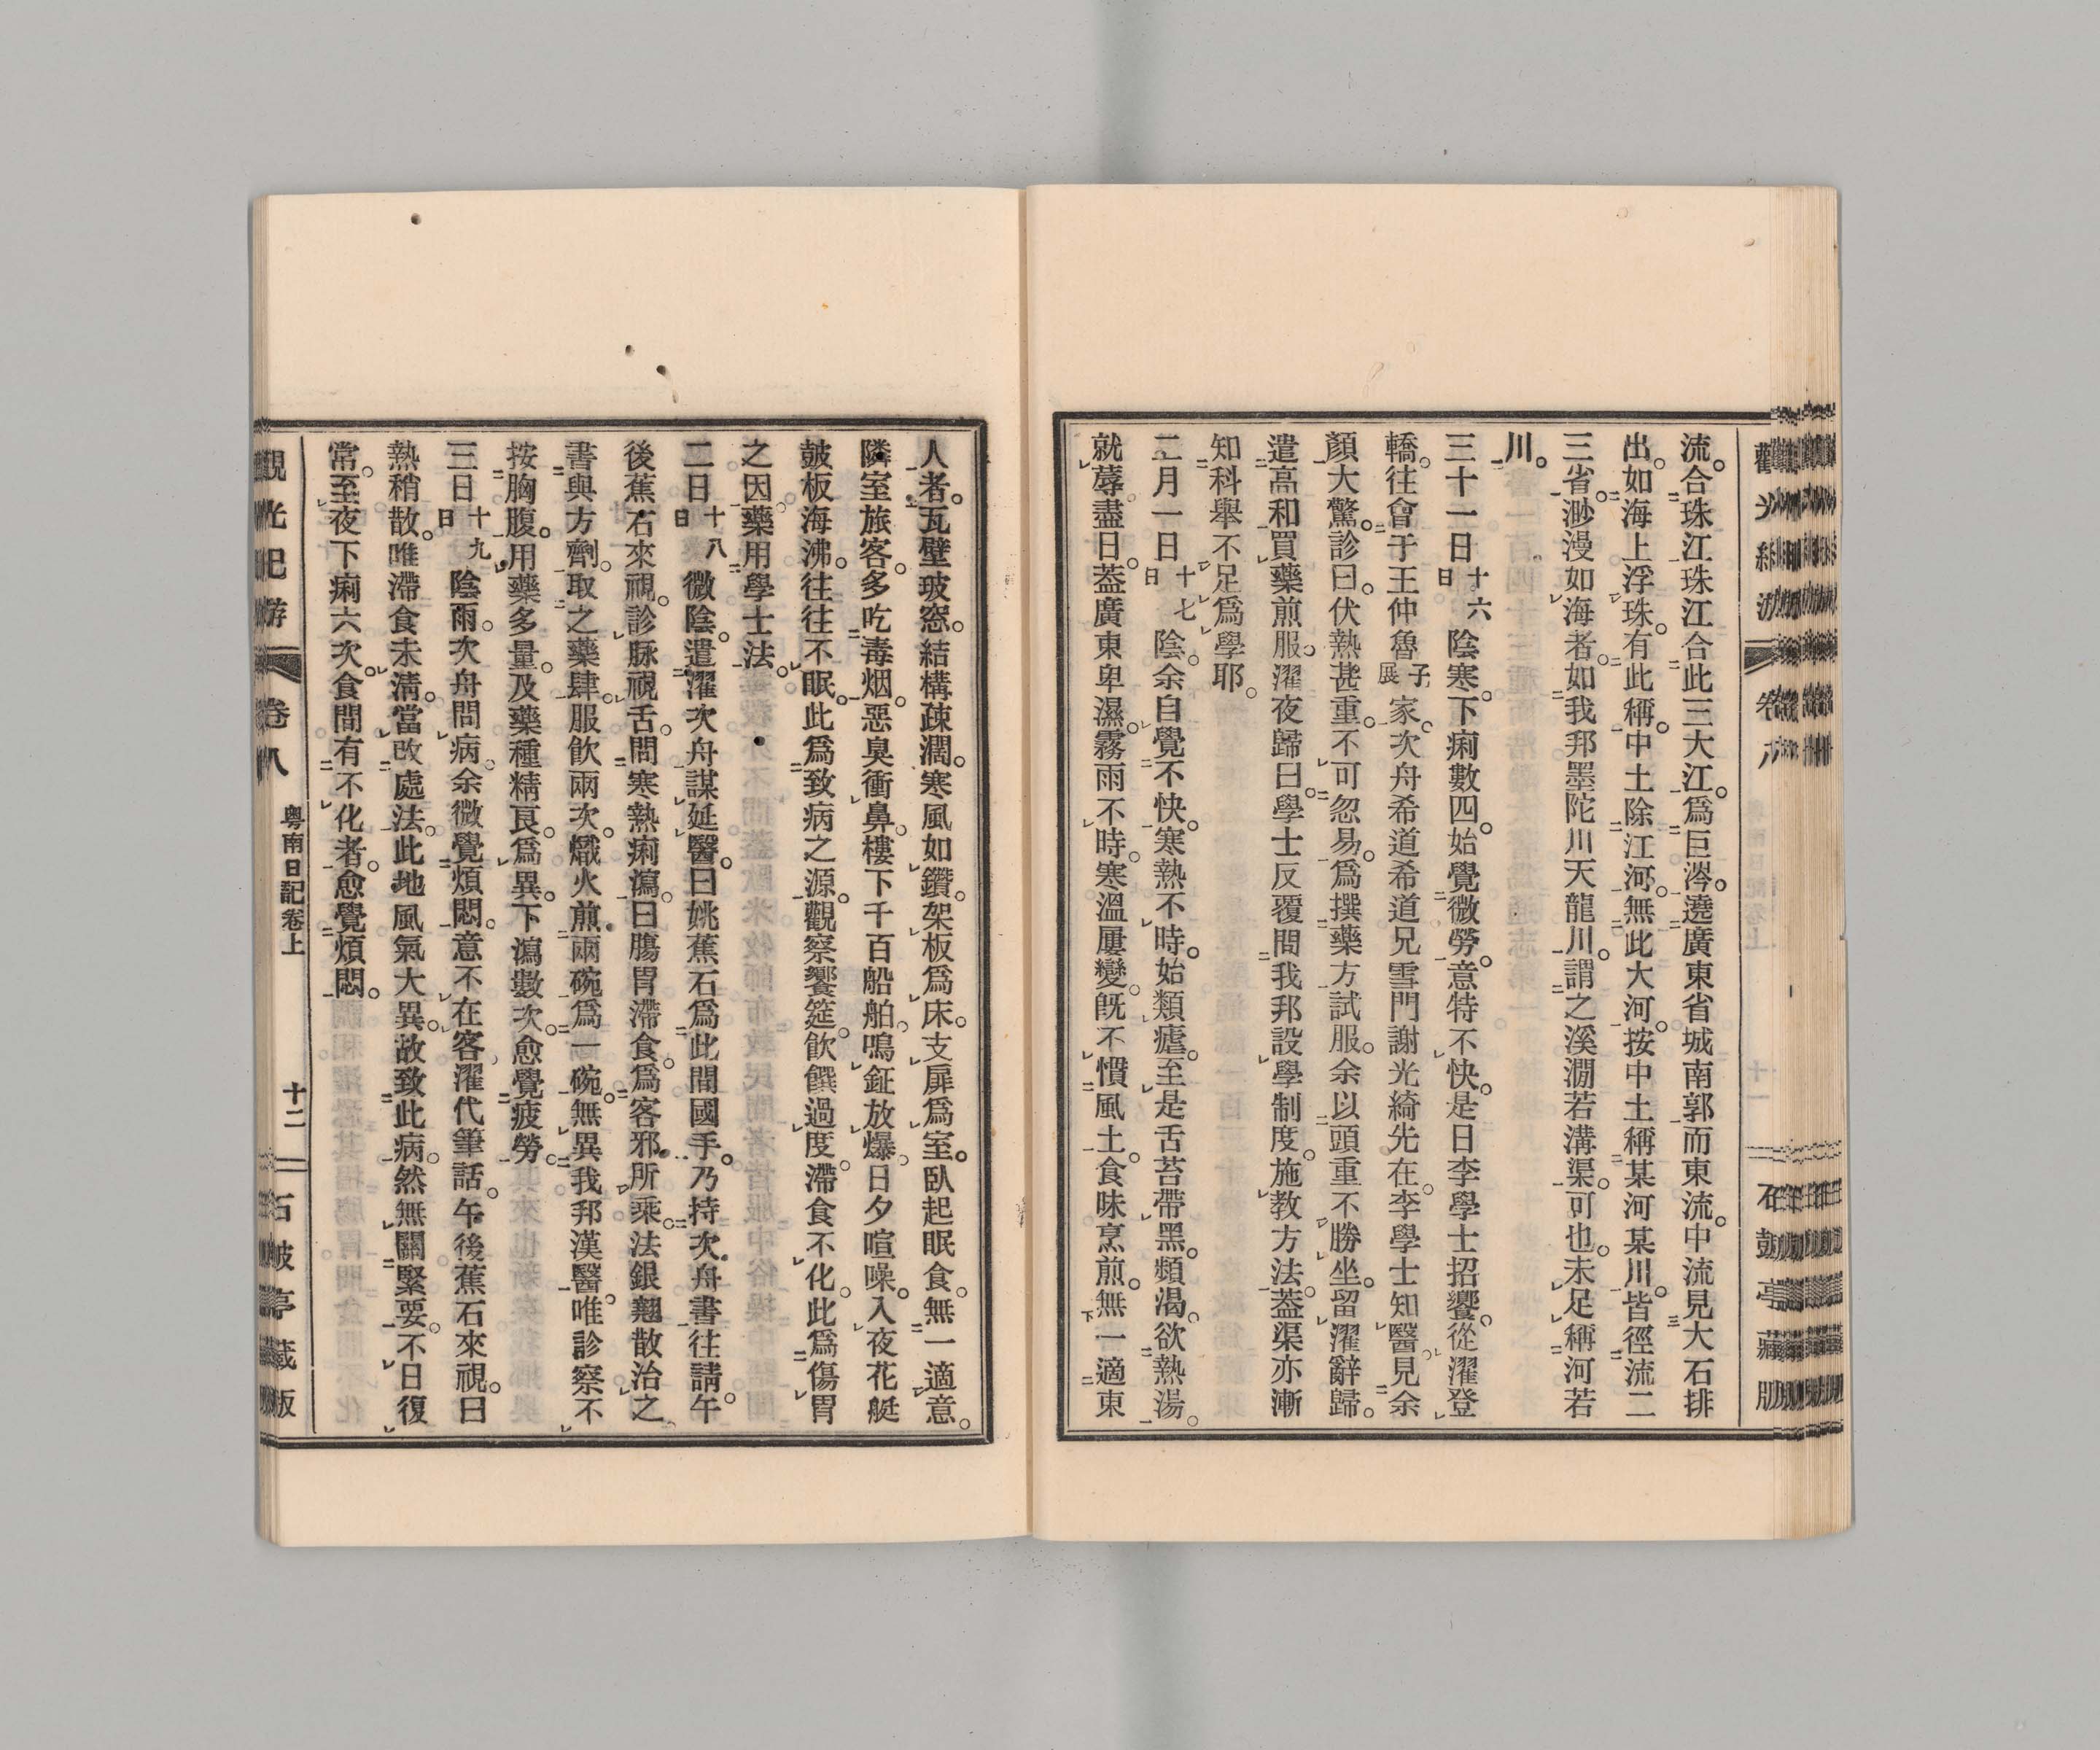 流。合珠江。珠江合此三大江。爲巨涔。遶廣東省城南郭而東流。中流見大石排
出。如海上浮珠。有此稱。中土除江河。無此大河。按中土稱某河某川。皆徑流二
三省。渺漫如海者。如我邦墨陀川天龍川。謂之溪澗若溝渠。可也。未足稱河若
川。
三十一日十六日陰寒。下痢數四。始覺微勞。意特不快。是日李學士招饗。從濯登
轎。往會于王仲魯子展家。次舟希道希道兄雪門謝光綺先在。李學士知醫。見余
顏大驚。診曰。伏熱甚重。不可忽易。爲撰藥方試服。余以頭重不勝坐。留濯辭歸。
遣高和買藥煎服。濯夜歸曰。學士反覆問我邦設學制度。施教方法。葢渠亦漸
知科舉不足爲學耶。
二月一日十七日陰。余自覺不快。寒熱不時。始類瘧。至是舌苔帶黑。頻渴。欲熱湯。
就蓐盡日。葢廣東卑濕。霧雨不時。寒溫屢變。旣不慣風土。食味烹煎。無一適東
人者。瓦壁玻窓。結構疎濶。寒風如鑽。架板爲床。支扉爲室。臥起眠食。無一適意。
隣室旅客。多吃毒烟。惡臭衝鼻。樓下千百船舶。鳴鉦放爆。日夕喧噪。入夜花艇
皷板海沸。往往不眠。此爲致病之源。觀察饗筵。飲饌過度。滯食不化。此爲傷胃
之因。藥用學士法。
二日十八日微陰。遣濯次舟謀延醫。曰姚蕉石爲此間國手。乃持次舟書往請。午
後蕉石來視。診脉視舌。問寒熱痢瀉。曰膓胃滯食。爲客邪所乘。法銀翹散治之。
書與方劑。取之藥肆。服飲兩次。熾火煎。兩碗爲一碗。無異我邦漢醫。唯診察不
按胸腹。用藥多量。及藥種精良。爲異。下瀉數次。愈覺疲勞。
三日十九日陰雨。次舟問病。余微覺煩悶。意不在客。濯代筆話。午後蕉石來視。曰
熱稍散。唯滯食未淸。當改處法。此地風氣大異。故致此病。然無關緊要。不日復
常。至夜下痢六次。食間有不化者。愈覺煩悶。
觀光紀游
卷八
粤南日記卷上
十二
石皷亭藏版